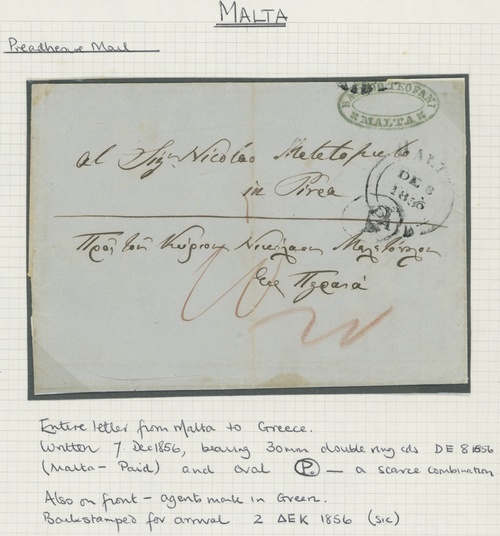 MALTA
Preadhesive Mail
TEOFANI
MALTA
al Sigr Nicolao
in Pirea
MALTA
DE 8
1856
PAID
Πρὸς τὸν Κύριον Νικόλαον
Εἰς Πειραιά
Entire letter from Malta to Greece.
Written 7 Dec 1856, bearing 30mm double ring cds DE 8 1856
(Malta - Paid) and oval P. - a scarce combination
Also on front - agents mark in Green.
Backstamped for arrival 2 ΔΕΚ 1856 (sic)